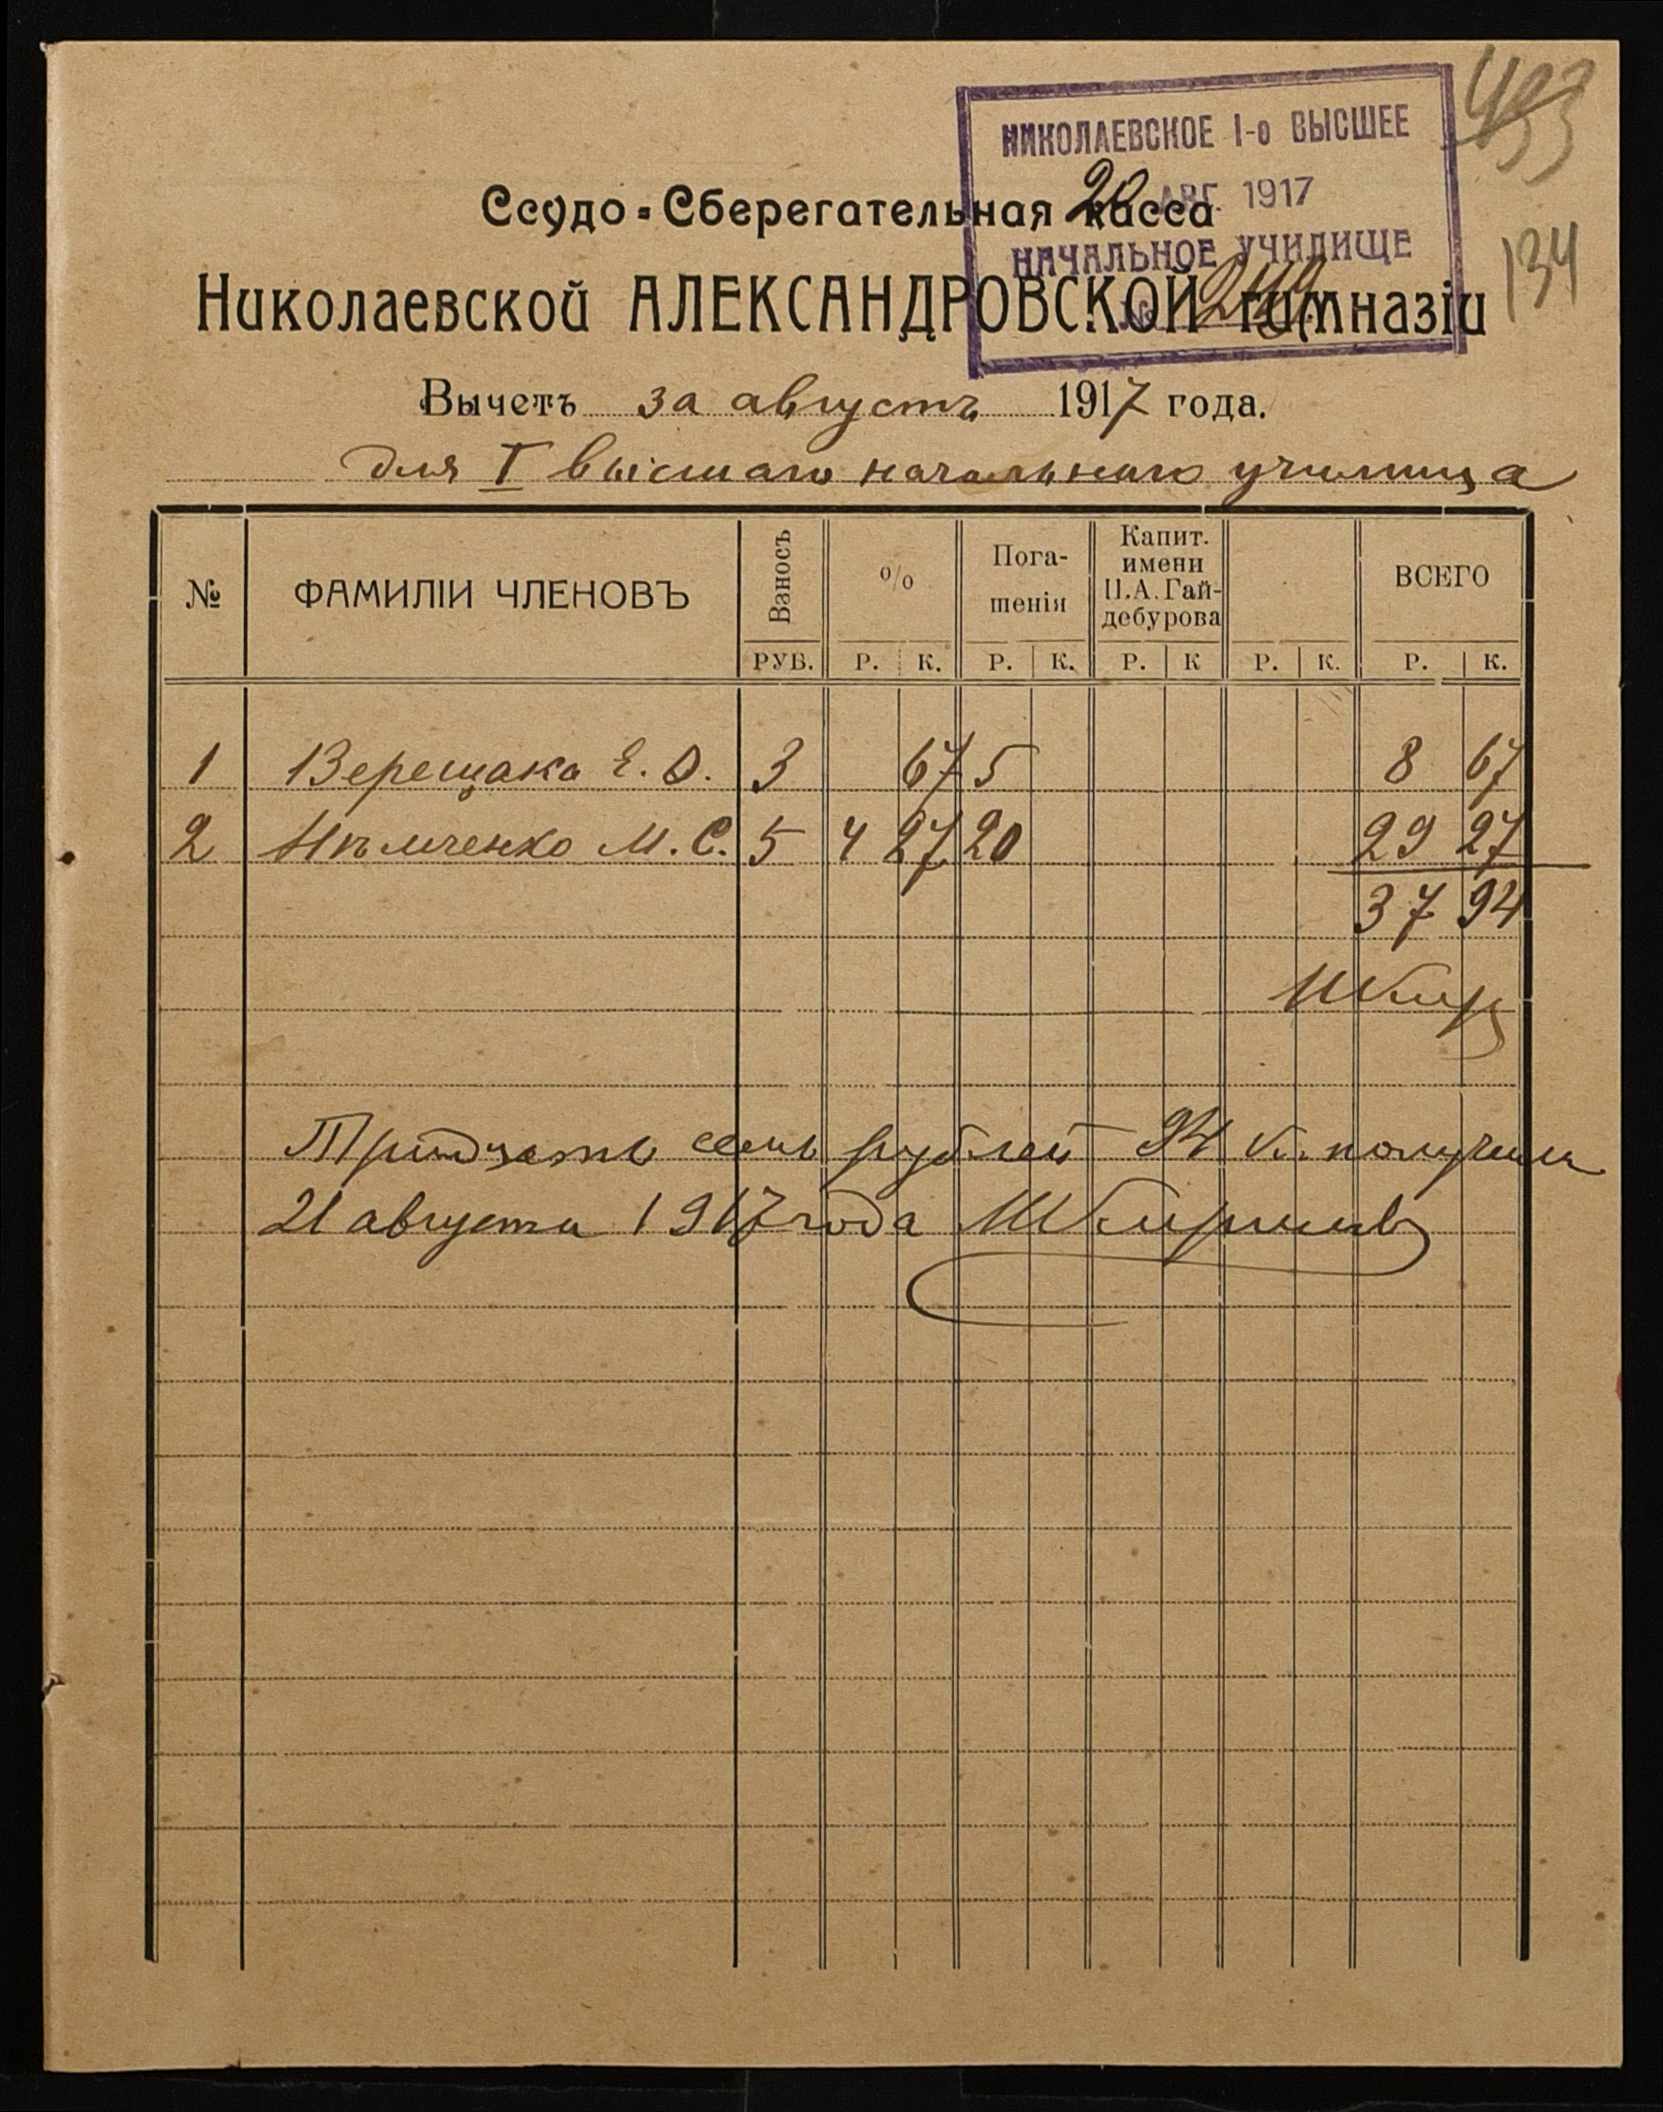 НИКОЛАЕВСКОЕ 1-о ВЫСШЕЕ
20 АВГ. 1917
НАЧАЛЬНОЕ УЧИЛИЩЕ
134
Ссудо-Сберегательная касса
Николаевской АЛЕКСАНДРОВСКОЙ гимназіи
Вычетъ за августъ 1917 года.
для I высшаго начальнаго училища
№ ФАМИЛІИ ЧЛЕНОВЪ Взносъ % Пога-шенія Капит. имени П.А. Гай-дебурова ВСЕГО
РУБ. Р. К. Р. К. Р. К Р. К. Р. К.
1 Верещака Е. Ѳ. 3 67 5 8 67
2 Нѣмченко М. С. 5 4 27 20 29 27
37 94
Тридцать семь рублей 94 к. получилъ
21 августа 1917 года